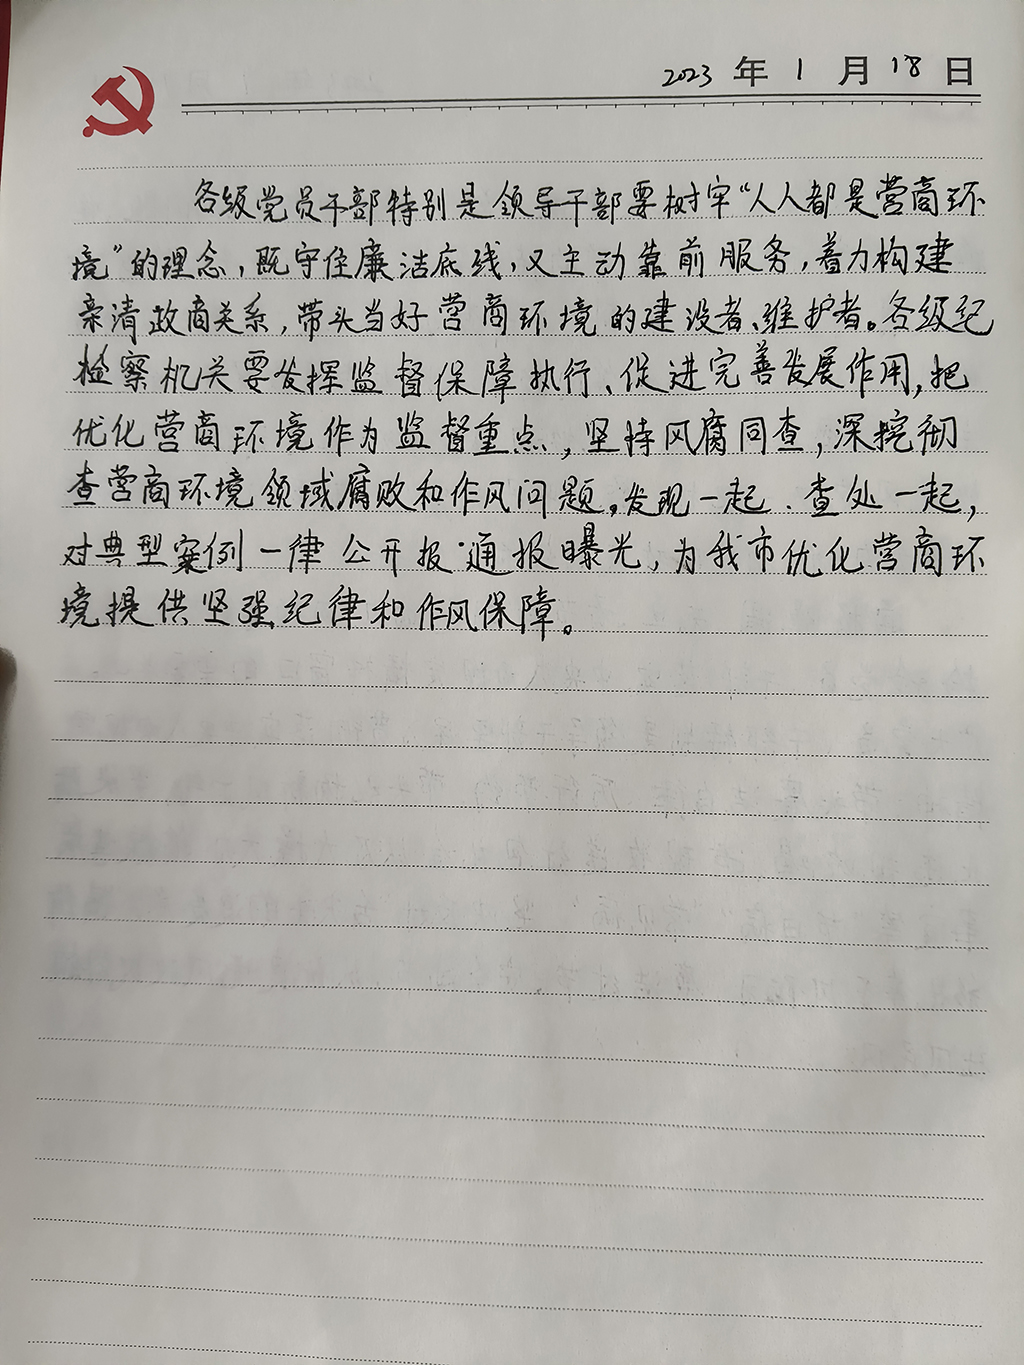 2023 年 1 月 18 日
各级党员干部特别是领导干部要树牢“人人都是营商环
境”的理念，既守住廉洁底线，又主动靠前服务，着力构建
亲清政商关系，带头当好营商环境的建设者、维护者。各级纪
检察机关要发挥监督保障执行、促进完善发展作用，把
优化营商环境作为监督重点，坚持风腐同查，深挖彻
查营商环境领域腐败和作风问题。发现一起、查处一起，
对典型案例一律公开报通报曝光，为我市优化营商环
境提供坚强纪律和作风保障。